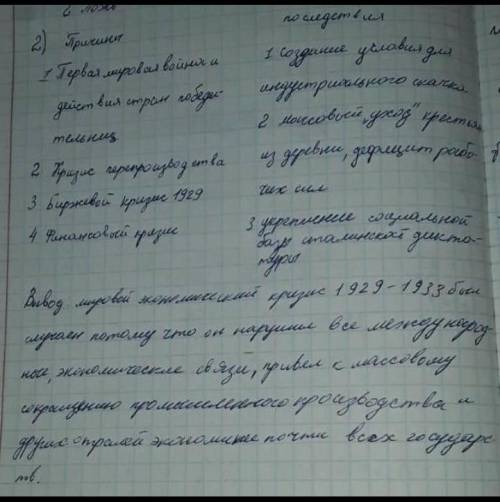 2) Причины
1 Первая мировая война и
действия стран победи-
тельниц
2 Кризис перепроизводства
3 Биржевой кризис 1929
4 Финансовый кризис
последствия
1 Создание условия для
индустриального скачка
2 массовый „уход" крестьян
из деревни, дефицит рабо-
чих сил
3 укрепление социальной
базы сталинской дикта-
туры
Вывод мировой экономический кризис 1929-1933 был
случаен потому что он нарушил все международ
ные, экономические связи, привёл к массовому
сокращению промышленного производства и
других отралей экономике почти всех государс
тв.